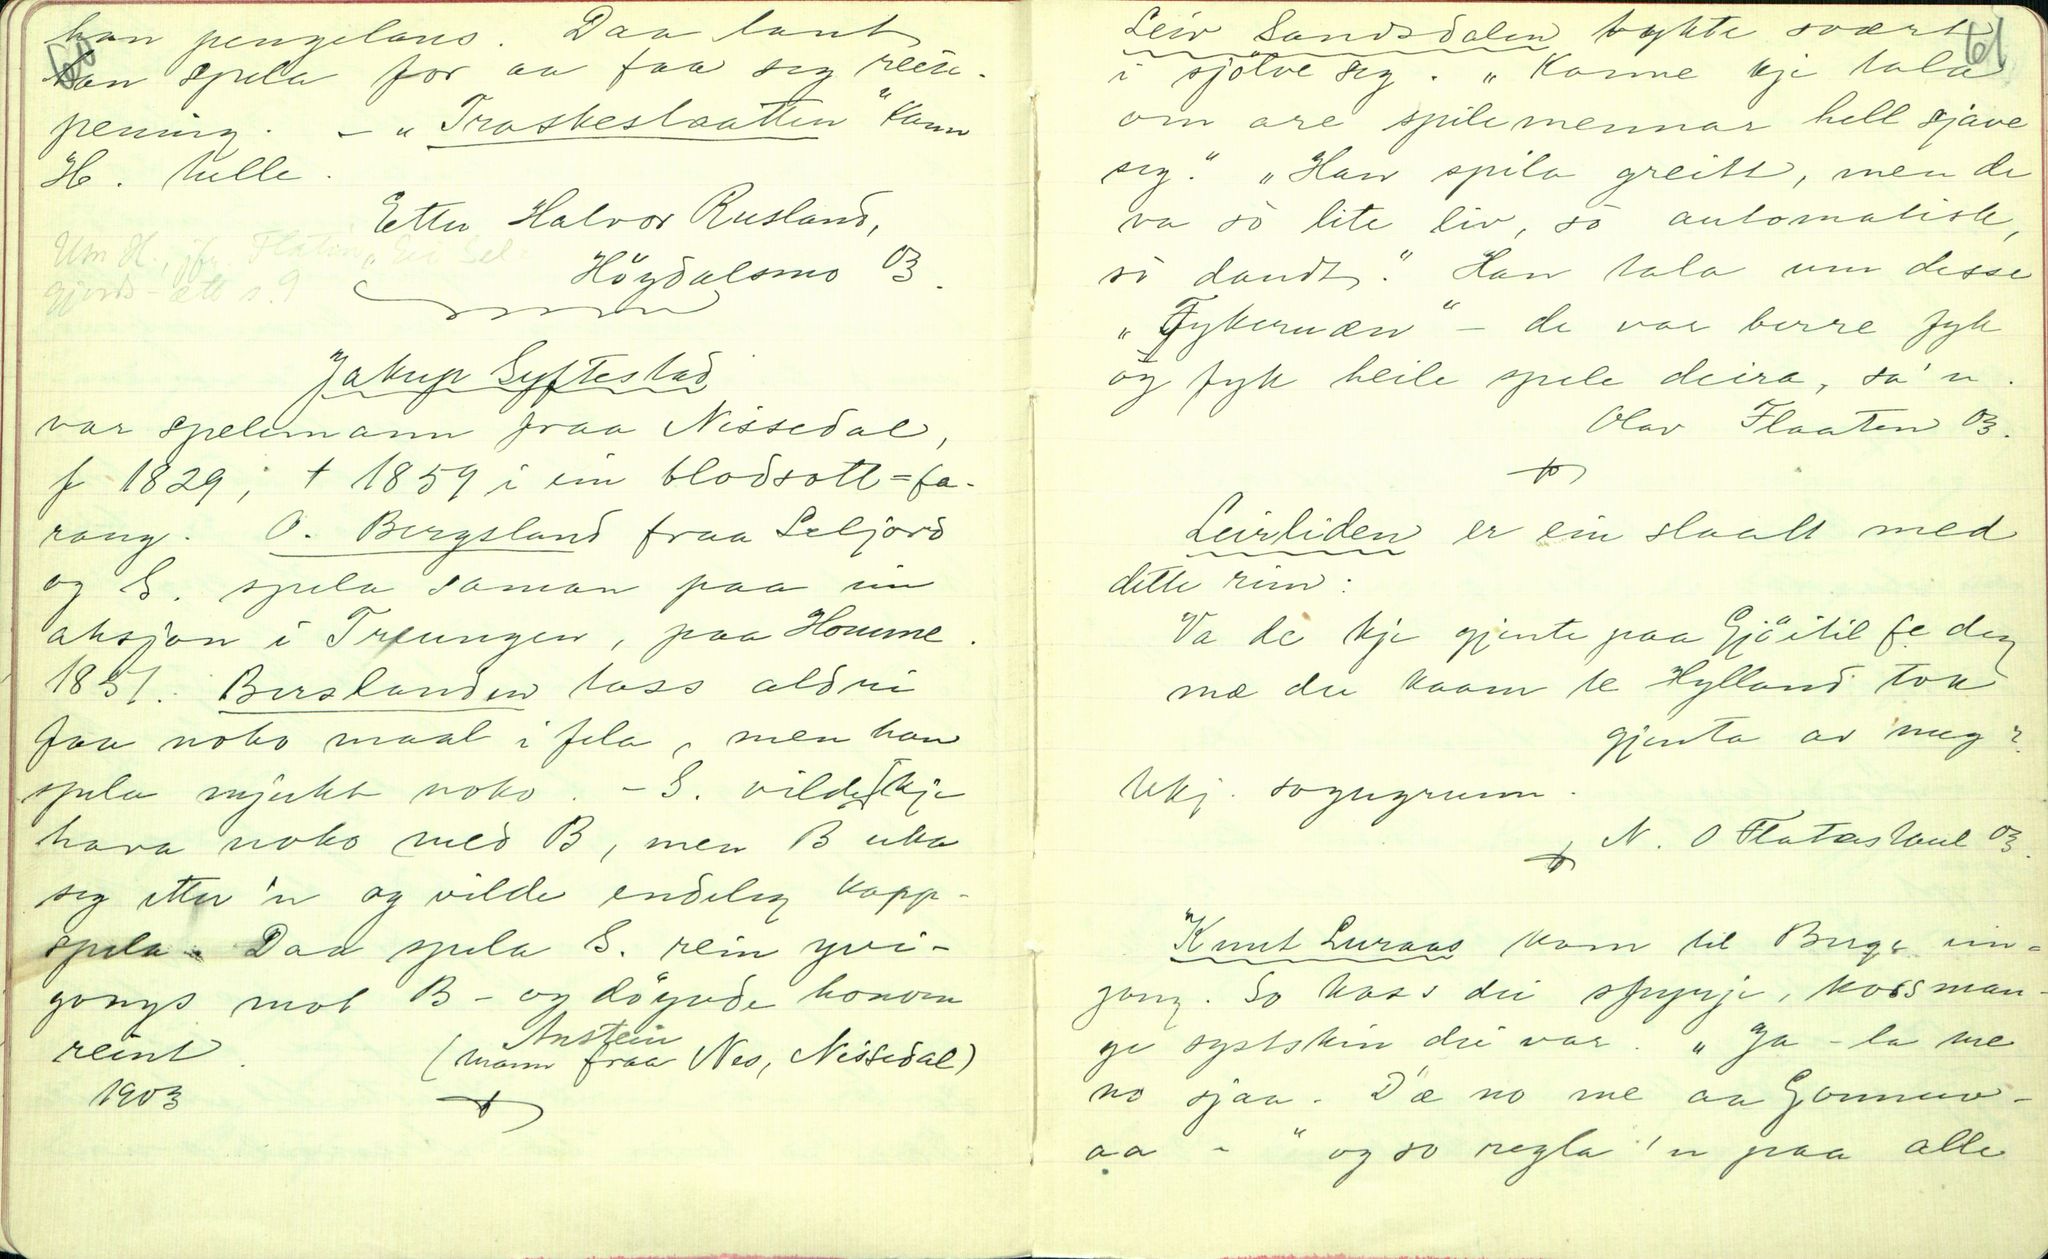 60
han pengelaus. Daa laut
han spela for aa faa seg reise-
pening. – „Traskeslaatten" kann
H. tulle.
Etter Halvor Rusland,
Høydalsmo 03.
Um H., jfr. Flatin, „Ei Sel-
gjords-ætt s. 9
Jakup Syftestad
var spelemann fraa Nissedal,
f 1829, † 1859 i ein blodsott=fa-
rang. O. Bergsland fraa Seljord
og S. spela saman paa ein
aksjon i Treungen, paa Homme.
1851. Berslanden loss aldri
faa noko maal i fela, men han
spela mjukt noko. – S. vilde kje
hava noko med B, men B uka
seg etter 'n og vilde endeleg kapp-
spela. Daa spela S. rein yvi-
gongs mot B – og döyvde honom
reint. (Anstein
mann fraa Nes, Nissedal)
1903
61
Leiv Sandsdalen tykte svært
i sjölve seg. „Konne kje tala
om are spilemennar hell sjave
seg." „Han spila greitt, men de
va so lite liv, so automatisk,
so dandt." Han tala um desse
„Fykeruæn" – de var berre fyk
og fyk heile spele deira, sa 'n.
Olav Flaaten 03.
Leirliden er ein slaatt med
dette rim:
Va de kje gjente paa Gjöitil fe deg
mæ du kaam te Hylland tok
gjenta av meg?
Ukj. sogugrunn.
N. O Flatastaul 03.
Knut Luraas kom til Berge ein-
gong. So kass dei spyrje, koss man-
ge systskin dei var. „Ja – la me
no sjaa. D'æ no me aa Gonnuv –
aa – " og so regla 'n paa alle